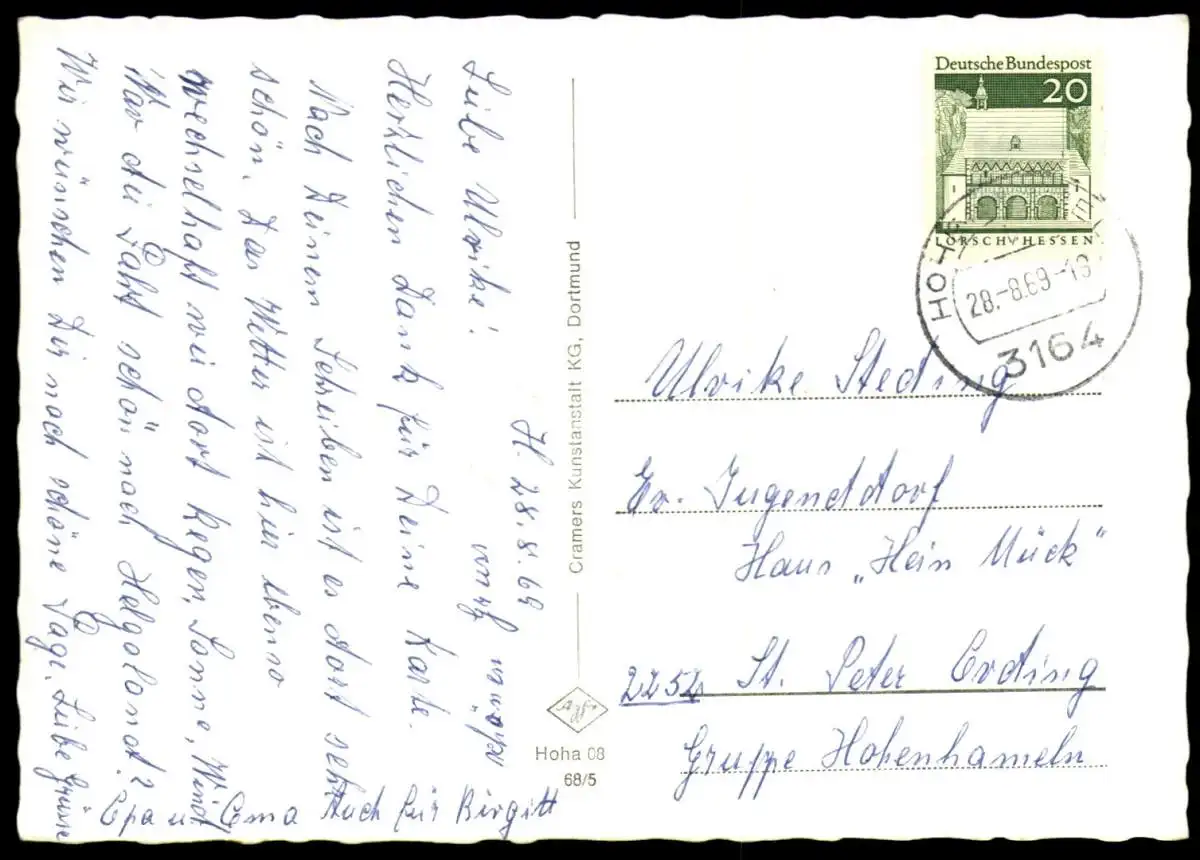 H. 28.8.69
Liebe Ulrike!
Herzlichen Dank für Deine Karte.
Nach Deinem Schreiben ist es dort sehr
schön. Das Wetter ist hier ebenso
wechselhaft wie dort Regen, Sonne, Wind
War die Fahrt schön nach Helgoland?
Wir wünschen Dir noch schöne Tage. Liebe Grüsse
Opa u Oma Auch für Birgitt
Cramers Kunstanstalt KG, Dortmund
Agfa
Hoha 08
68/5
Deutsche Bundespost
20
LORSCH/HESSEN
28.-8.69-18
3164
Ulrike Steding
Ev. Jugenddorf
Haus „Hein Mück"
2252 St. Peter Ording
Gruppe Hohenhameln